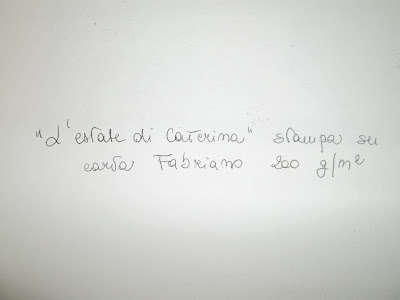 "d'estate di Caterina" stampa su
carta Fabriano 200 g/m²